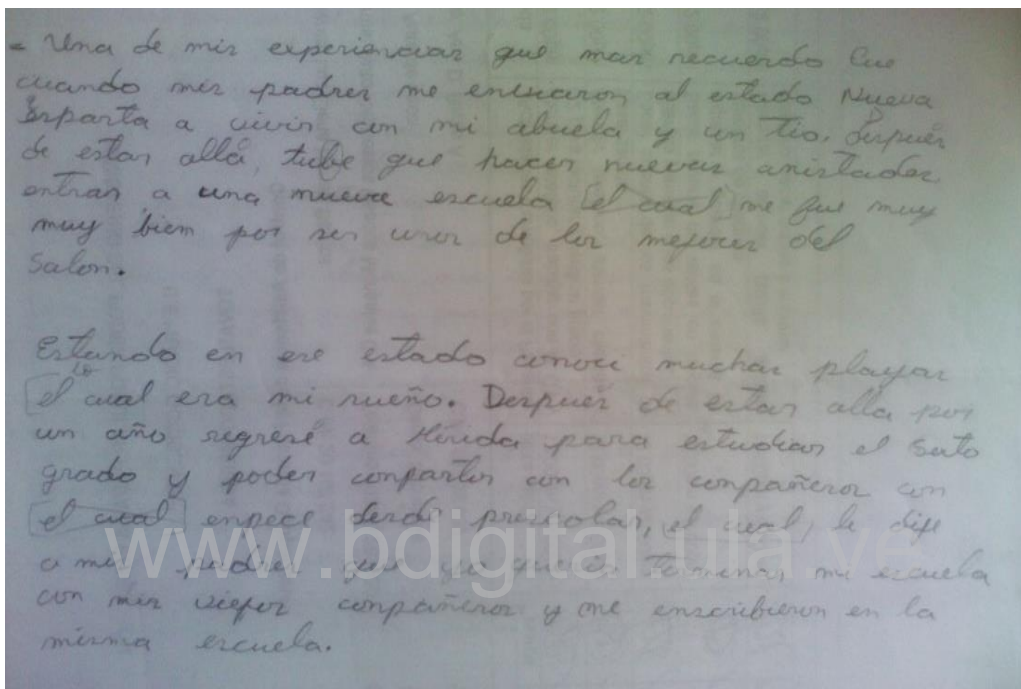 - Una de mis experiencias que mas recuerdo fue
cuando mis padres me enviaron al estado Nueva
Esparta a vivir con mi abuela y un tio. Después
de estar allá, tube que hacer nuevas amistades
entrar a una nueva escuela el cual me fue muy
muy bien por ser unos de los mejores del
salon.
Estando en ese estado conoci muchas playas
lo
el cual era mi sueño. Después de estar alla por
un año regresé a Mérida para estudiar el Sexto
grado y poder compartir con los compañeros con
el cual empece desde preescolar, el cual le dije
a mis padres que yo queria terminar mi escuela
con mis viejos compañeros y me enscribieron en la
misma escuela.
www.bdigital.ula.ve